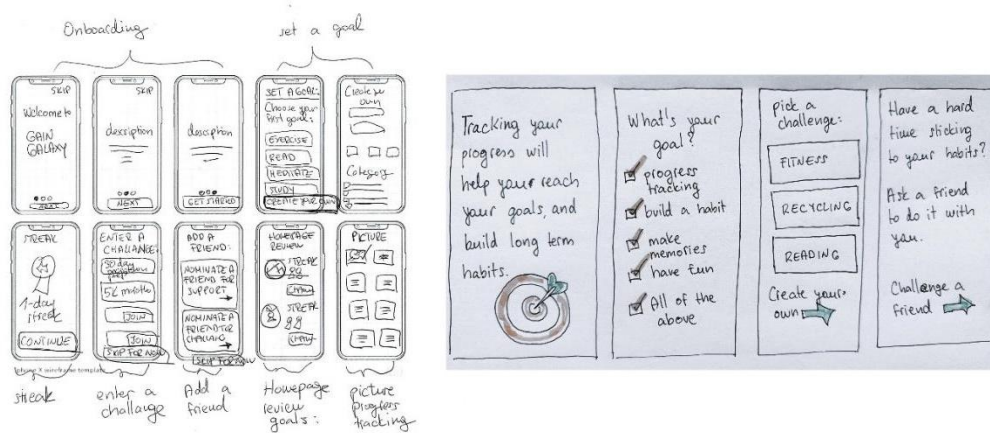 Onboarding
set a goal
SKIP
Welcome to
GAIN
GALAXY
NEXT
SKIP
description
NEXT
description
GET STARTED
SET A GOAL:
Choose your
first goal:
EXERCISE
READ
MEDITATE
STUDY
CREATE YOUR OWN
Create your
own
Category
STREAK
1-day
streak
CONTINUE
ENTER A
CHALLANGE:
30 day
5k
JOIN
JOIN
SKIP FOR NOW
ADD A
FRIEND:
NOMINATE A
FRIEND FOR
SUPPORT
NOMINATE A
FRIEND FOR
SKIP FOR NOW
HOMEPAGE
REVIEW
STREAK
STREAK
PICTURE
iphone X wireframe template
streak
enter a
challange
Add a
friend
Homepage
review
goals:
picture
progress
tracking
Tracking your
progress will
help your reach
your goals, and
build long term
habits.
What's your
goal?
progress
tracking
build a habit
make
memories
have fun
All of the
above
pick a
challenge:
FITNESS
RECYCLING
READING
Create your
own
Have a hard
time sticking
to your habits?
Ask a friend
to do it with
you.
Challenge a
friend